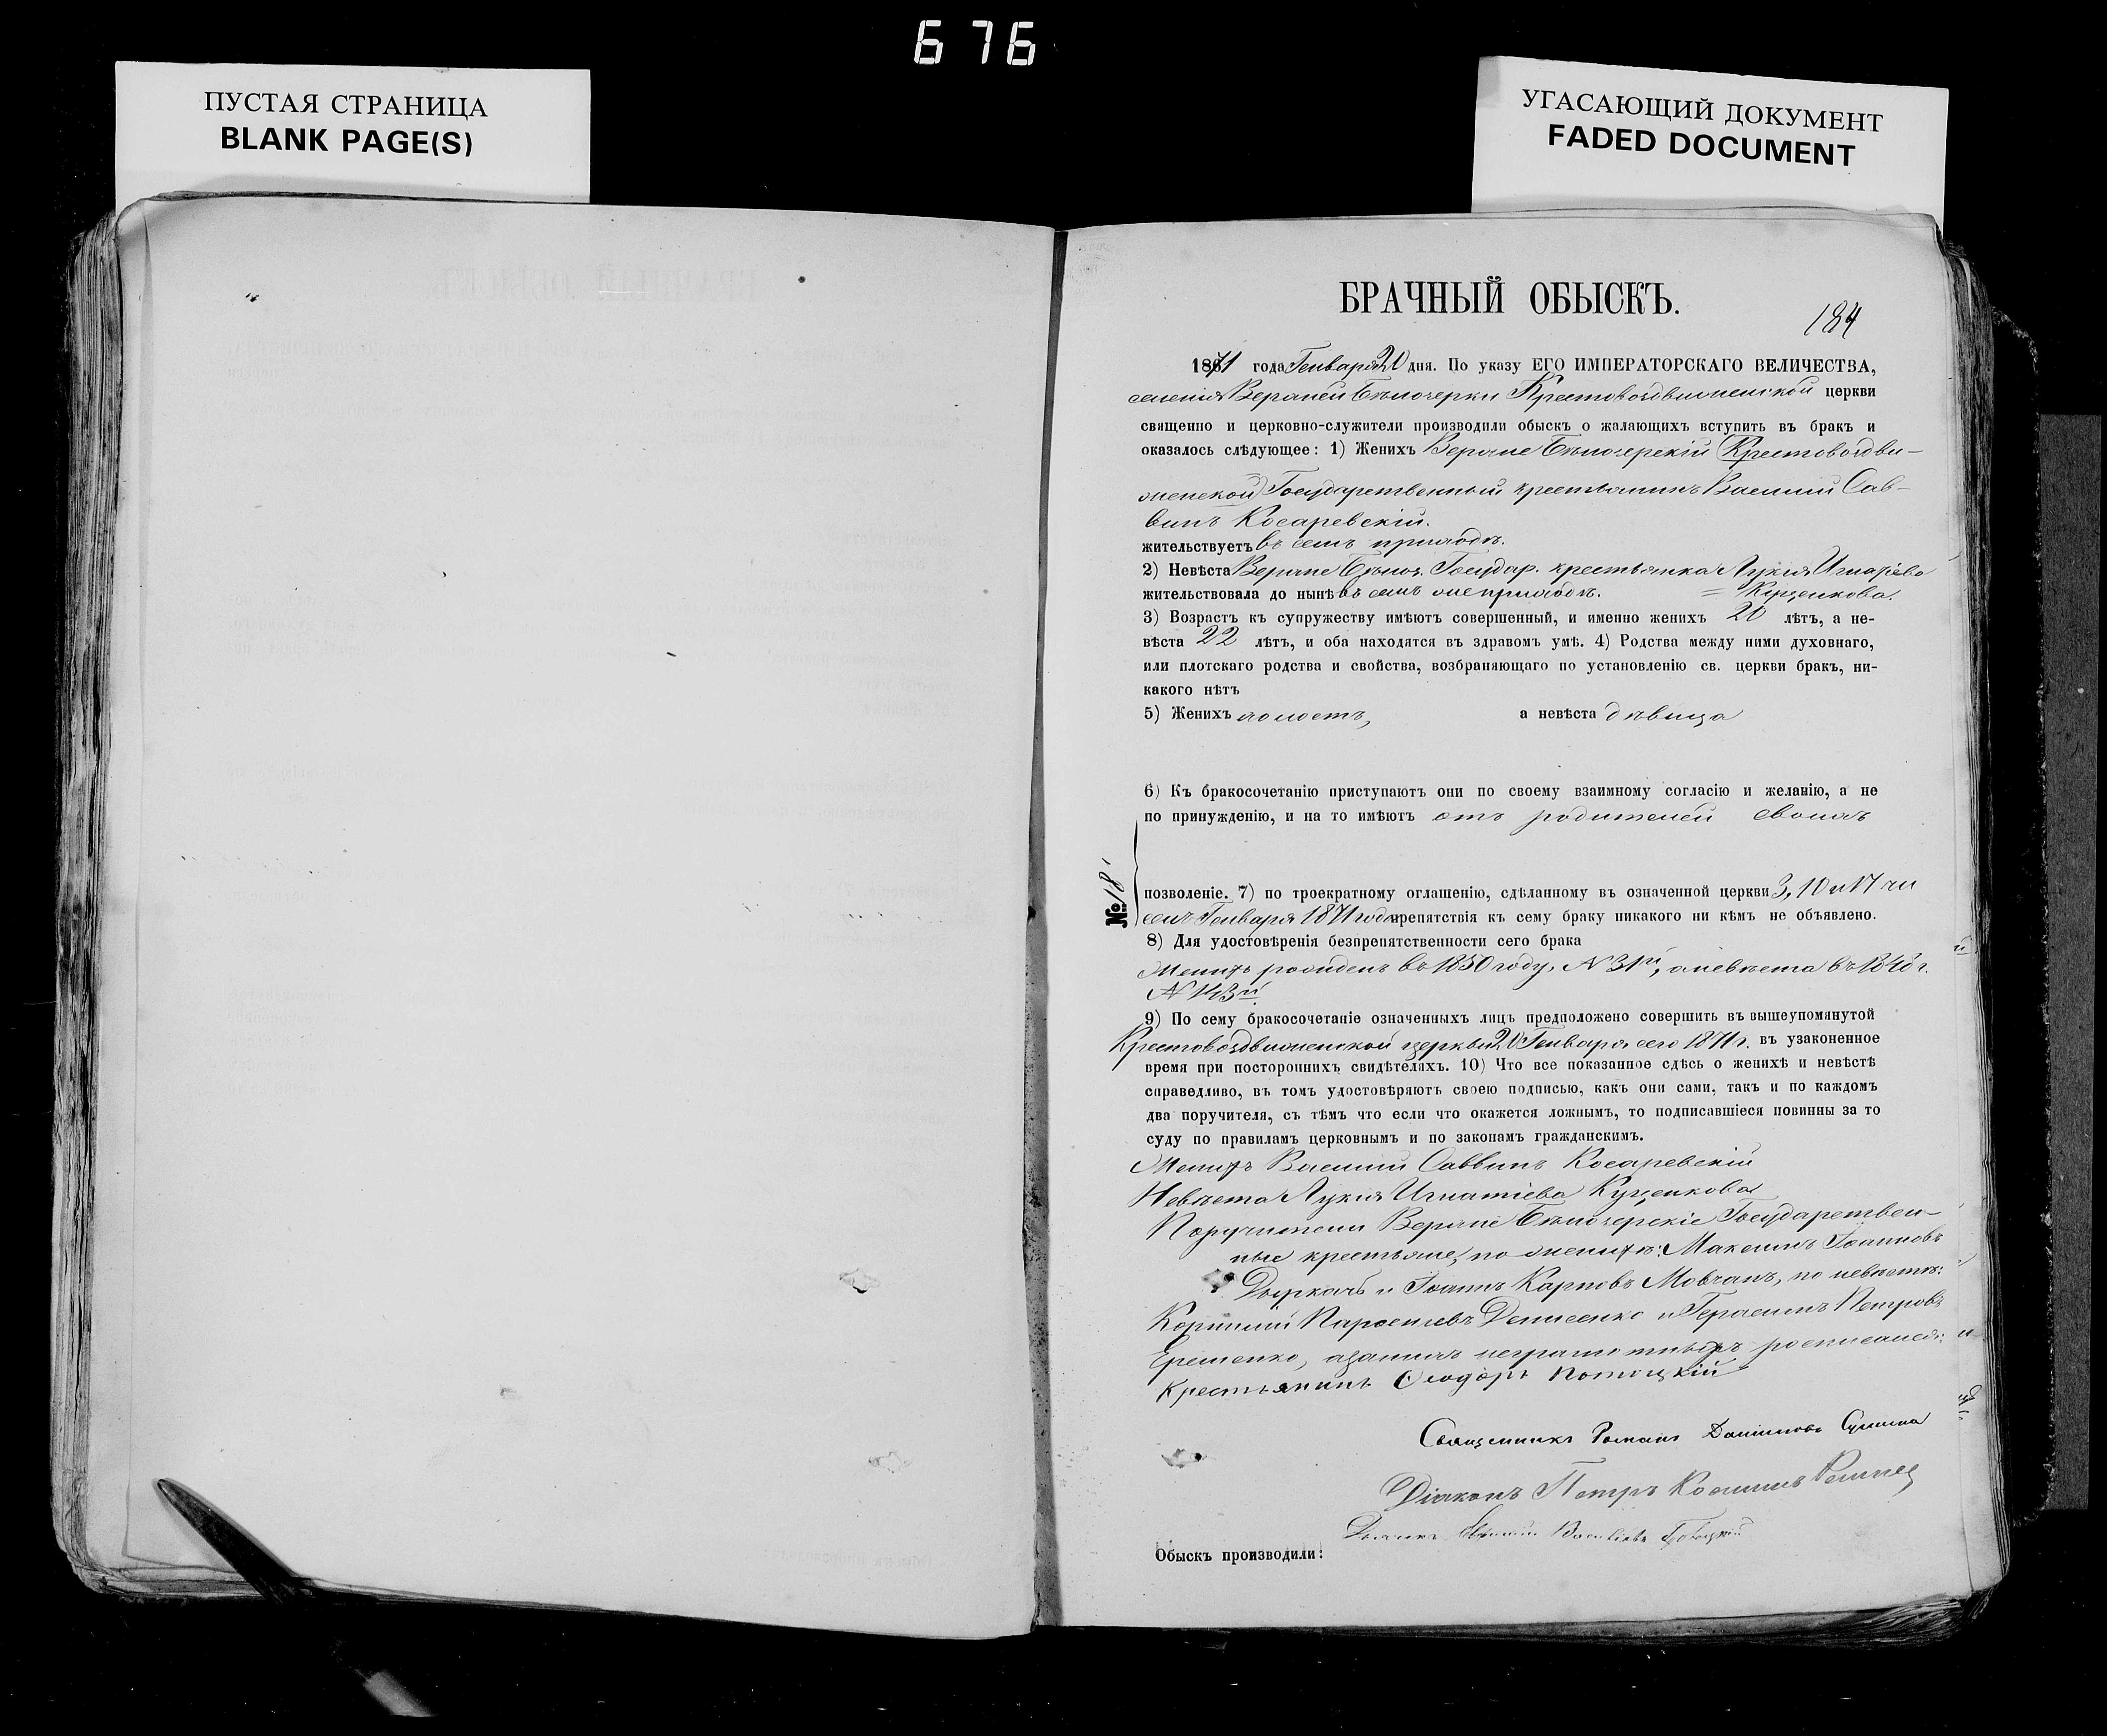 676
ПУСТАЯ СТРАНИЦА
BLANK PAGE(S)
УГАСАЮЩИЙ ДОКУМЕНТ
FADED DOCUMENT
БРАЧНЫЙ ОБЫСКЪ.
184
1871 года Генваря 20 дня. По указу ЕГО ИМПЕРАТОРСКАГО ВЕЛИЧЕСТВА,
селенія Верхней Бѣлозерки Крестовоздвиженской церкви
священно и церковно-служители производили обыскъ о жалающихъ вступить въ бракъ и
оказалось слѣдующее: 1) Женихъ Верхне Бѣлозерскій (Крестовоздви-
женской) Государственный крестьянинъ Василій Сав-
винъ Косаревскій.
жительствуетъ въ семъ приходѣ.
2) Невѣста Верхне Бѣлоз. Государ. крестьянка Лукія Игнатіева
жительствовала до нынѣ въ семъ же приходѣ. = Куценкова.
3) Возрастъ къ супружеству имѣютъ совершенный, и именно женихъ 20 лѣтъ, а не-
вѣста 22 лѣтъ, и оба находятся въ здравомъ умѣ. 4) Родства между ними духовнаго,
или плотскаго родства и свойства, возбраняющаго по установленію св. церкви бракъ, ни-
какого нѣтъ
5) Женихъ холостъ, а невѣста дѣвица
6) Къ бракосочетанію приступаютъ они по своему взаимному согласію и желанію, а не
по принужденію, и на то имѣютъ отъ родителей своихъ
№ 18
позволеніе. 7) по троекратному оглашенію, сдѣланному въ означенной церкви 3, 10 и 17 чи
селъ Генваря 1871 года препятствія къ сему браку никакого ни кѣмъ не объявлено.
8) Для удостовѣренія безпрепятственности сего брака
Женихъ рожденъ въ 1850 году, № 31й, а невѣста въ 1848 г.
№ 143й
9) По сему бракосочетаніе означенныхъ лицъ предположено совершить въ вышеупомянутой
Крестовоздвиженской церкви 20 Генваря сего 1871 г. въ узаконенное
время при постороннихъ свидѣтеляхъ. 10) Что все показанное сдѣсь о женихѣ и невѣстѣ
справедливо, въ томъ удостовѣряютъ своею подписью, какъ они сами, такъ и по каждомъ
два поручителя, съ тѣмъ что если что окажется ложнымъ, то подписавшіеся повинны за то
суду по правиламъ церковнымъ и по законамъ гражданскимъ.
Женихъ Василій Саввинъ Косаревскій
Невѣста Лукія Игнатіева Куценкова
Поручители Верхне Бѣлозерскіе Государствен-
ные крестьяне, по женихѣ: Максимъ Іоанновъ
Дыркачъ и Іоаннъ Карповъ Мовчанъ, по невѣстѣ:
Корнилій Денисенко и Герасимъ Петровъ
Еременко, а за нихъ неграмотныхъ росписался:
Крестьянинъ Ѳеодоръ Потоцкій
Священникъ Романъ Даниловъ
Діаконъ Петръ Косминъ
Обыскъ производили: